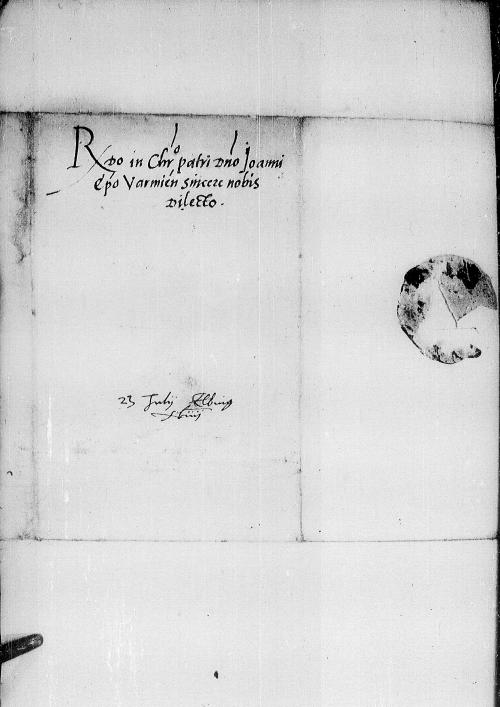 Rdo in Chro patri Dno Joanni
Epo Varmien sincere nobis
Dilecto.
23 Julij